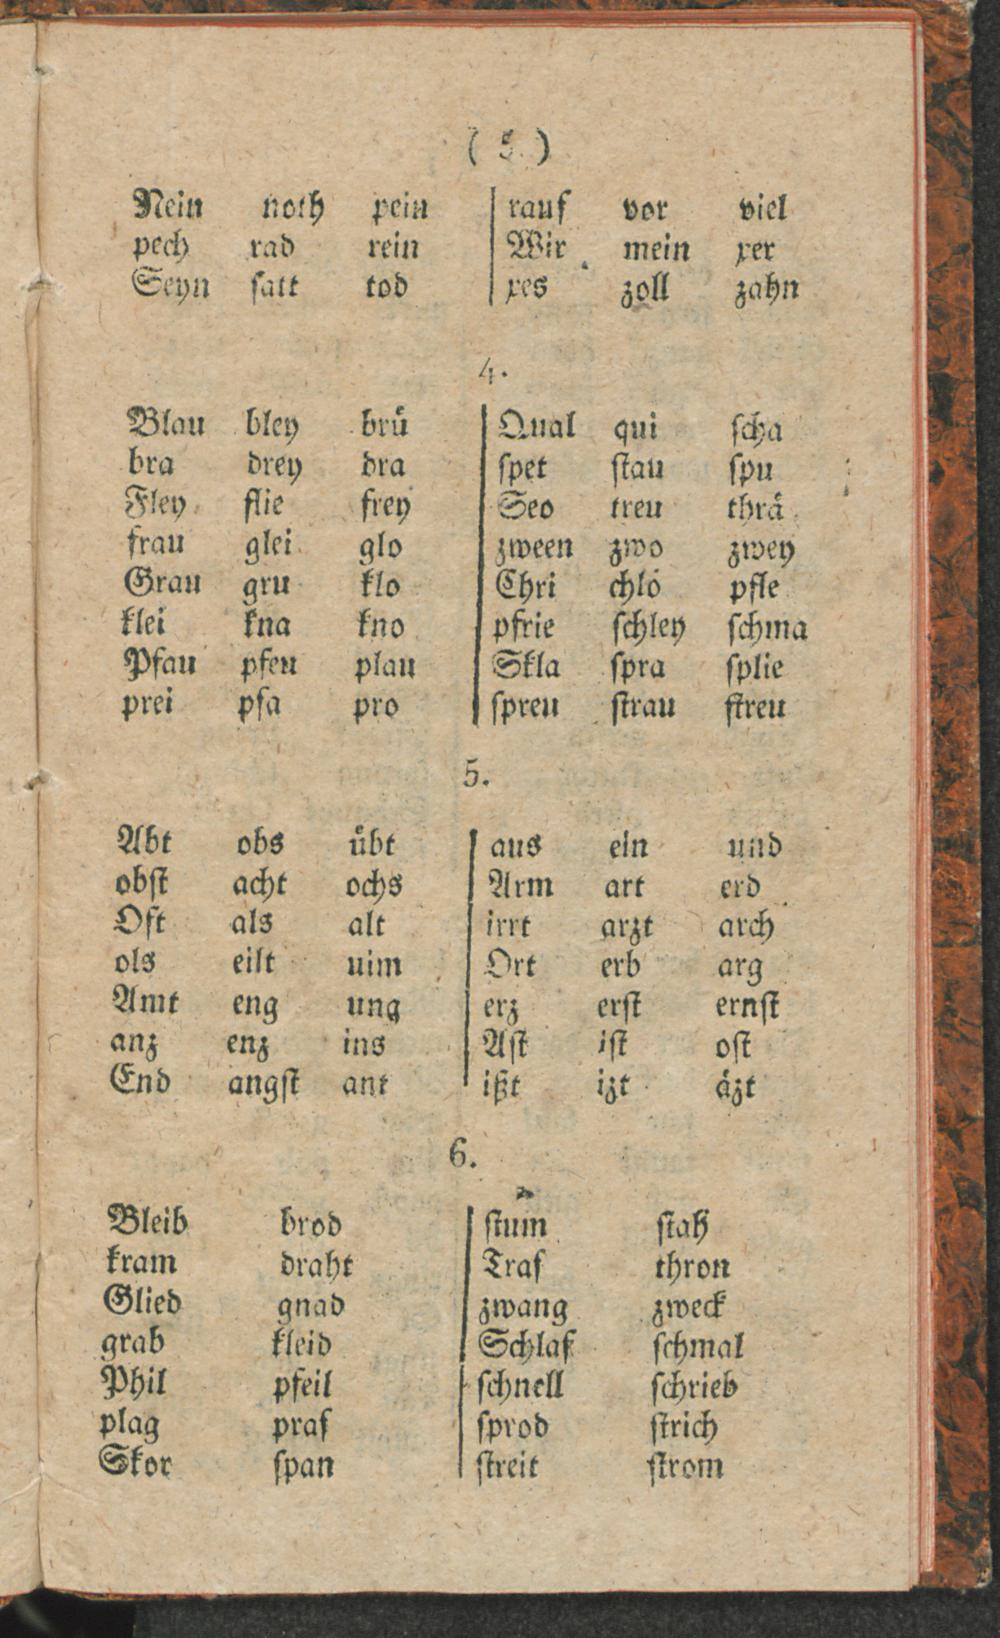 ( 5 )
Nein noth pein rauf vor viel
pech rad rein Wir mein xer
Seyn ſatt tod xes zoll zahn
4.
Blau bley bruͤ Qual qui ſcha
bra drey dra ſpet ſtau ſpu
Fley flie frey Seo treu thraͤ
frau glei glo zween zwo zwey
Grau gru klo Chri chlo pfle
klei kna kno pfrie ſchley ſchma
Pfau pfeu plau Skla ſpra ſplie
prei pſa pro ſpreu ſtrau ſtreu
5.
Abt obs uͤbt aus ein und
obſt acht ochs Arm art erd
Oft als alt irrt arzt arch
ols eilt uim Ort erb arg
Amt eng ung erz erſt ernſt
anz enz ins Aſt iſt oſt
End angſt ant ißt izt aͤzt
6.
Bleib brod ſtum ſtah
kram draht Traf thron
Glied gnad zwang zweck
grab kleid Schlaf ſchmal
Phil pfeil ſchnell ſchrieb
plag praſ ſprod ſtrich
Skor ſpan ſtreit ſtrom